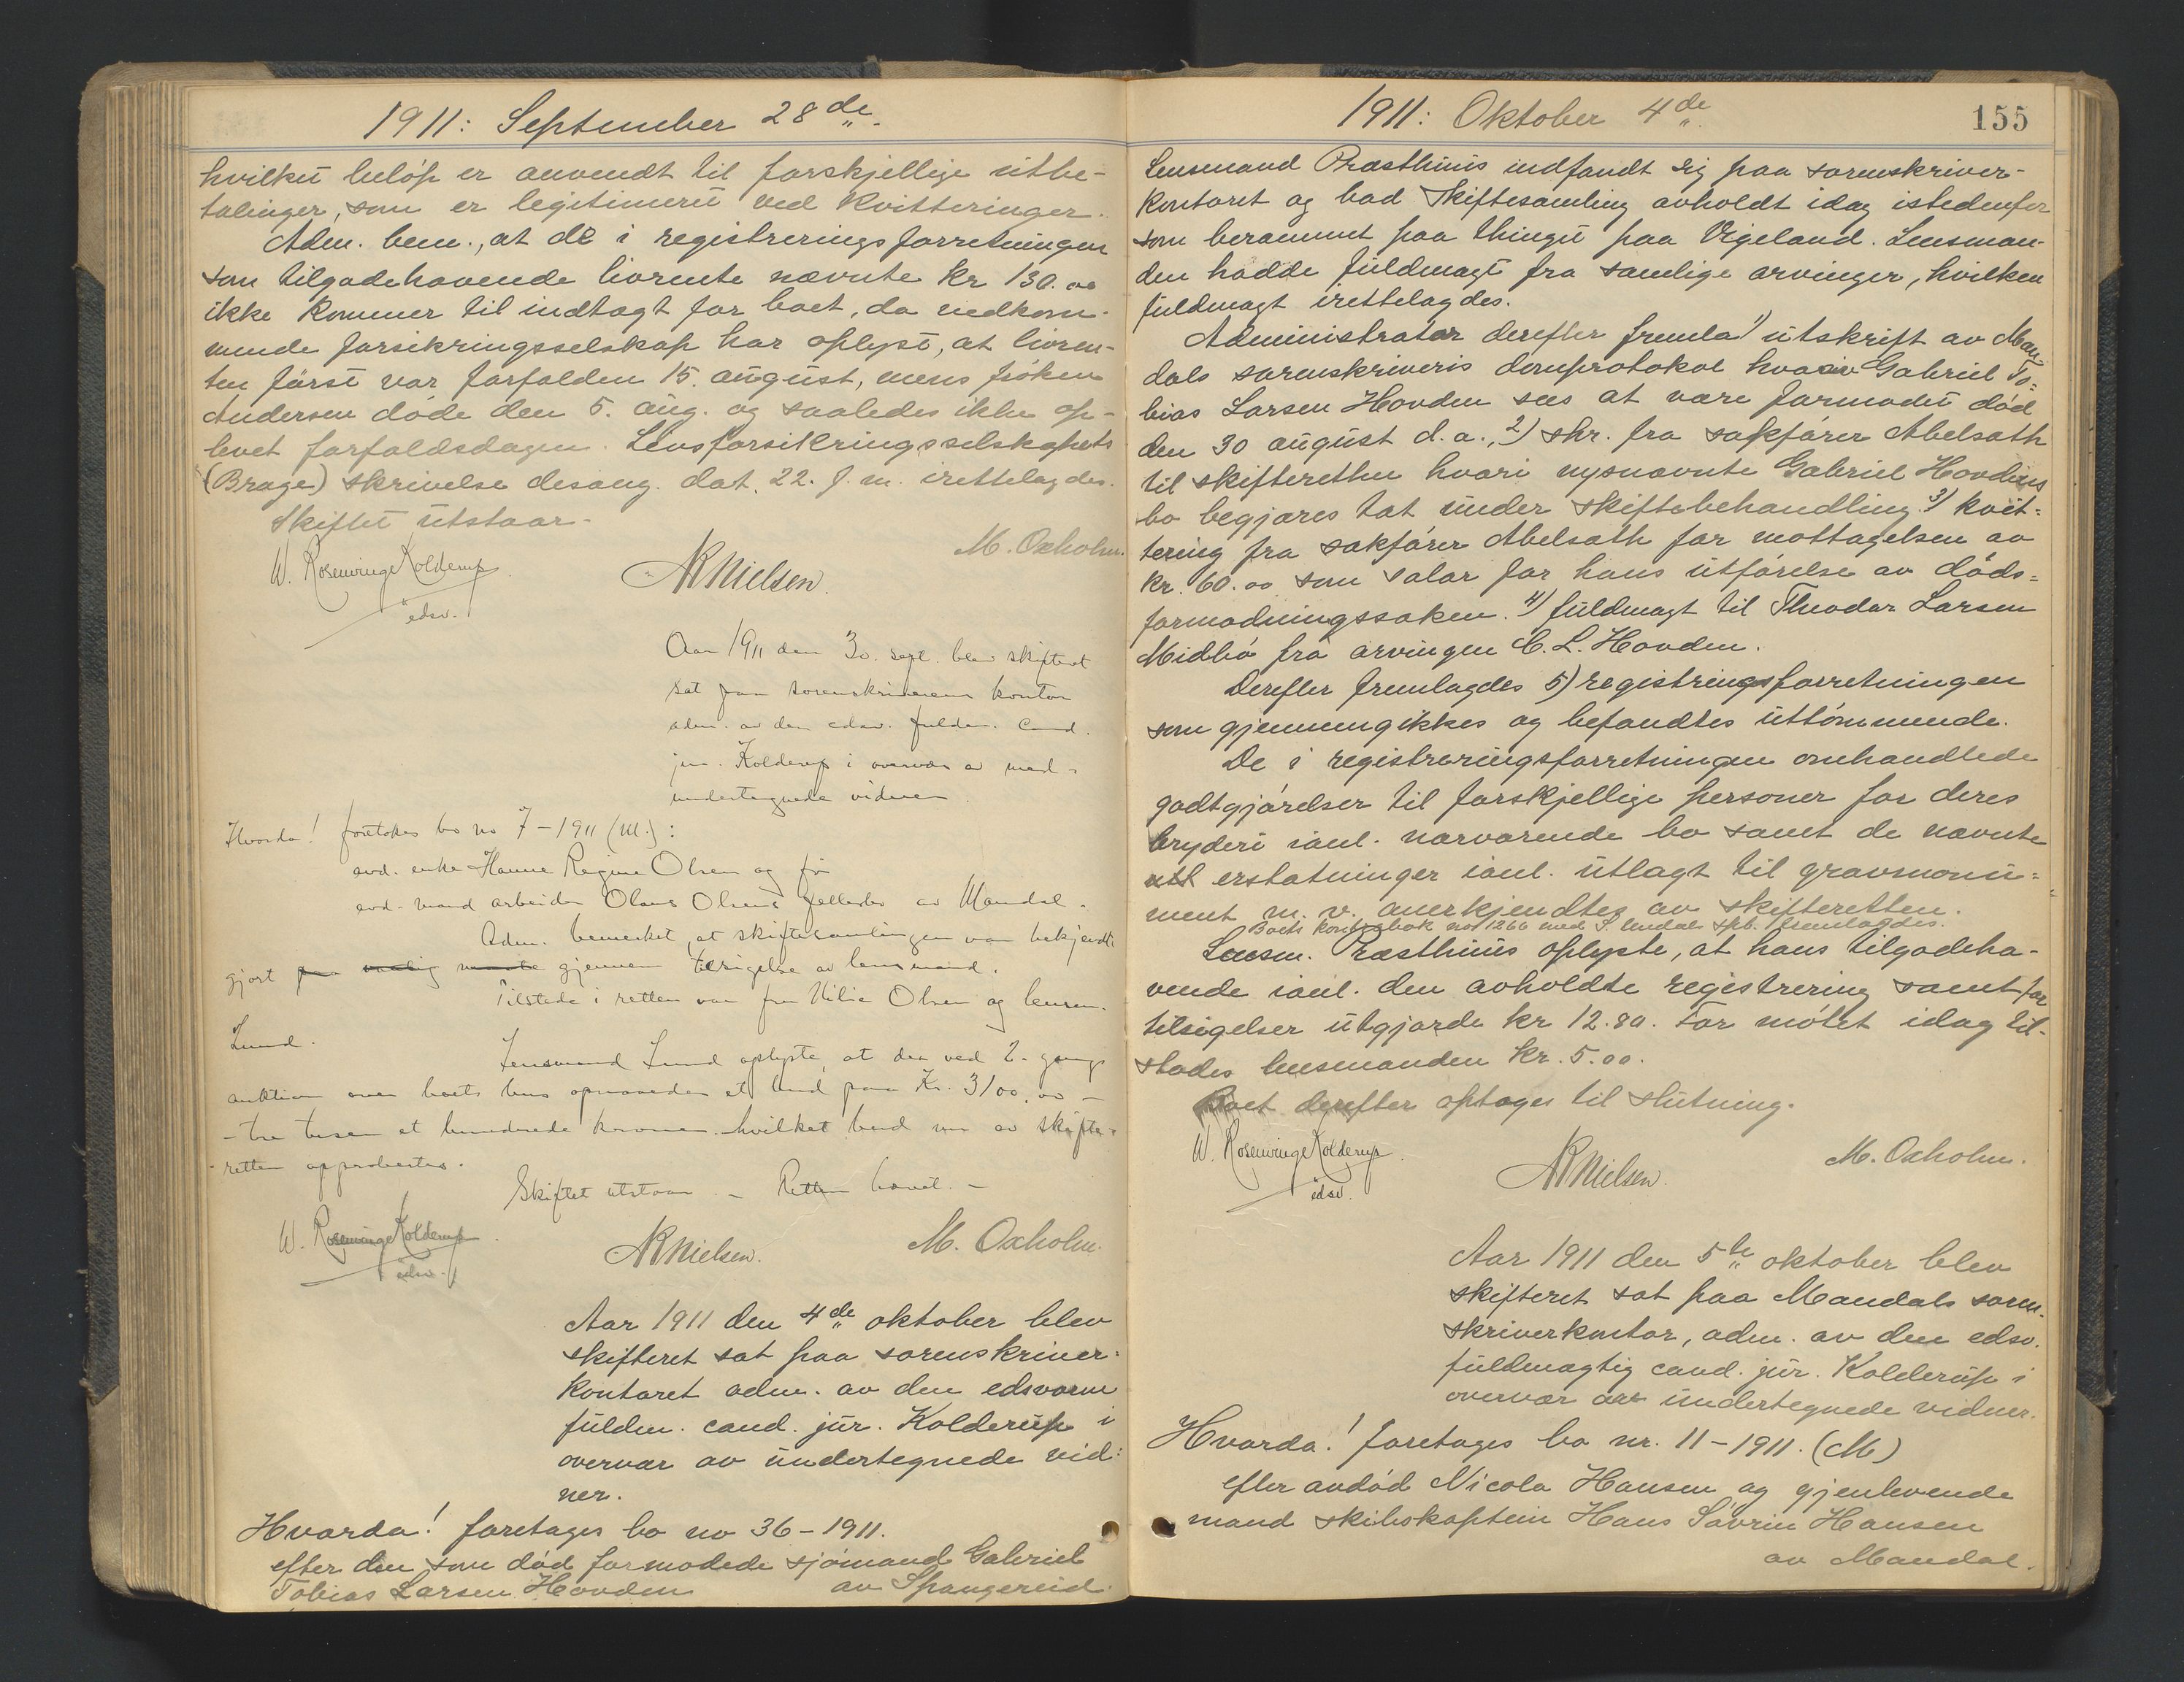 1911: September 28de
hvilket beløp er anvendt til forskjellige utbe-
talinger, som er legitimeret ved kvitteringer.
Adm. bem., at de i registreringsforretningen
som tilgodehavende livrente nævnte kr 130.00
ikke kommer til indtægt for boet, da vedkom-
mende forsikringsselskap har oplyst, at livren-
ten først var forfalden 15. august, mens frøken
Andersen døde den 5. aug. og saaledes ikke op-
levet forfaldsdagen. Livsforsikringsselskapets
(Brage) skrivelse desang. dat. 22. f. m. irettelagdes.
Skiftet utstaar.
M. Oxholm.
W. Rosenvinge Kolderup
edsv.
NRNielsen.
Aar 1911 den 30. sept. blev skifteret
sat paa sorenskriverens kontor
adm. av den edsv. fuldm. cand.
jur. Kolderup i overvær av med-
undertegnede vidner
Hvorda! foretokes bo no 7-1911 (M.):
avd. enke Hanne Regine Olsen og før
avd. mand arbeider Olaus Olsens fællesbo av Mandal.
Adm. bemerket, at skiftesamlingen var bekjendt-
gjort gjennem tilsigelse av lensmand.
Tilstede i retten var fru Olsen og lensm.
Lund.
Lensmand Lund oplyste, at der ved 2. gangs
auktion over boets hus opnaaedes et bud paa Kr. 3100.00 -
- tre tusen et hundrede kroner. hvilket bud av skifte-
retten approbertes.
Skiftet utstaar. - Retten hævet. -
W. Rosenvinge Kolderup
edsv.
NRNielsen.
M. Oxholm.
Aar 1911 den 4de oktober blev
skifteret sat paa sorenskriver-
kontoret adm. av den edsvorne
fuldm. cand. jur. Kolderup i
overvær av undertegnede vid-
ner.
Hvorda! foretages bo no 36-1911.
efter den som død formodede sjømand Gabriel
Tobias Larsen Hovden av Spangereid.
1911: Oktober 4de
155
Lensmand Præsthuus indfandt sig paa sorenskriver-
kontoret og bad skiftesamling avholdt idag istedenfor
som berammet paa thinget paa Vigeland. Lensman-
den hadde fuldmagt fra samlige arvinger, hvilken
fuldmagt irettelagdes.
Administrator derefter fremla 1) utskrift av Man-
dals sorenskriveris domprotokol hvorav Gabriel To-
bias Larsen Hovden sees at være formodet død
den 30 august d.a., 2) skr. fra sakfører Abelsøth
til skifteretten hvori nysnævnte Gabriel Hovdens
bo begjæres tat under skiftebehandling 3) kvit-
tering fra sakfører Abelsøth for mottagelsen av
kr. 60.00 som salær for hans utførelse av døds-
formodningssaken. 4) fuldmagt til Theodor Larsen
Midbø fra arvingen C. L. Hovden.
Derefter fremlagdes 5) registreringsforretningen
som gjennemgikkes og befandtes uttømmende.
De i registreringsforretningen omhandlede
godtgjørelser til forskjellige personer for deres
bryderi ianl. nærværende bo samt de nævnte
erstatninger ianl. utlægt til gravmonu-
ment m. v. anerkjendtes av skifteretten.
Boets kontrabok no 1266 med S. Undal spb. fremlagdes.
Lensm. Præsthuus oplyste, at hans tilgodeha-
vende ianl. den avholdte registrering samt for
tilsigelser utgjorde kr 12.80. For møtet idag til-
stodes lensmanden kr. 5.00.
Boet derefter optages til slutning.
W. Rosenvinge Kolderup.
edsv.
NRNielsen.
M. Oxholm.
Aar 1911 den 5te oktober blev
skifteret sat paa Mandals soren-
skriverkontor, adm. av den edsv.
fuldmægtig cand. jur. Kolderup i
overvær av undertegnede vidner.
Hvorda! foretages bo nr. 11-1911. (M)
efter avdød Nicola Hansen og gjenlevende
mand skibskaptein Hans Søvrin Hansen
av Mandal.